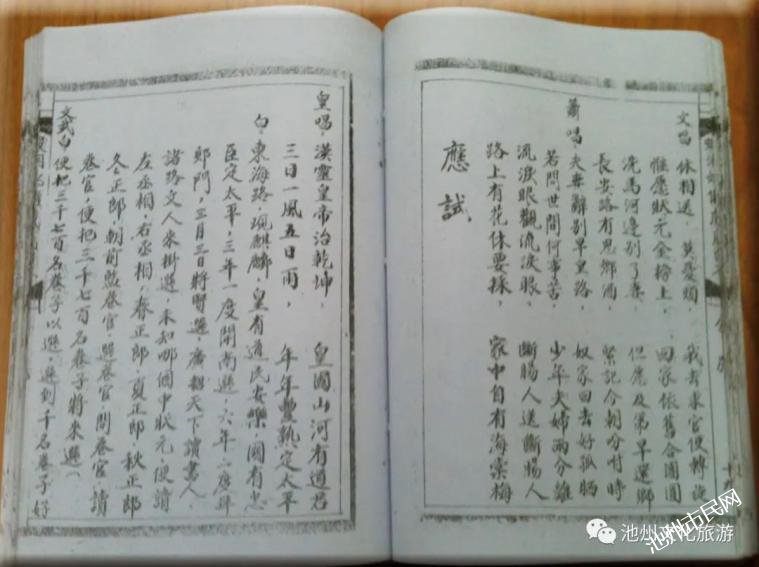 文唱 休相送，莫憂煩， 我去求官便轉
應狀元金榜上， 回家依舊合團圓
洗馬河邊別了妻， 但應及第早還鄉
長安路有思鄉酒， 緊記今朝分咐時
蕭唱 夫妻辭別早里路， 奴家回去好孤恓
若問世間何事苦， 少年夫婦兩分離
流淚眼觀流淚眼， 斷腸人送斷腸人
路上有花休要採， 家中自有海棠梅
應試
皇唱 漢靈皇帝治乾坤， 皇國山河有道君
三日一風五日雨， 年年豐熟定太平
白：東海路現麒麟，皇有道民安樂，國有忠
臣定太平，三年一度開南選，六年二度拜
門，三月三日將選，廣招天下讀書人，
諸路文人來掛選，未知哪個中狀元，便請
左丞相，右丞相，春正郎，夏正郎，秋正郎
冬正郎，朝前監卷官，照卷官，開卷官，請
卷官，便把三千七百名卷子將來選（
文武白 便把三千七百名卷子以選，選到千名卷子好
池州文化旅游
池州市民网